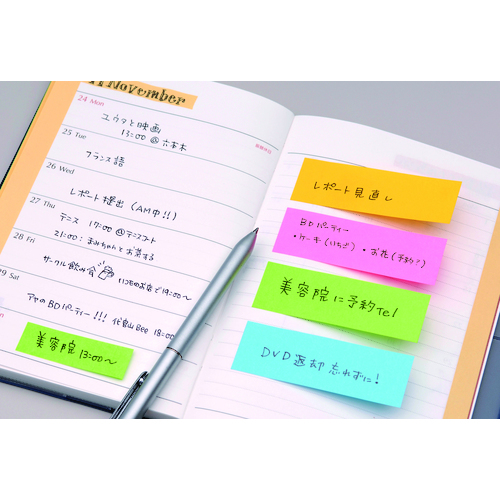 11 November
24 Mon
ユウマと映画
13:00 @ 六本木
勤労感謝の日
25 Tue
フランス語
26 Wed
レポート提出 (AM中!!)
27 Thu
テニス 17:00 @テニスコート
21:00: まみちゃんとお茶する
28 Fri
サークル飲み会 いつものお店で19:00〜
29 Sat
アヤのBDパーティー!!! 代官山Bee 18:00
美容院 13:00〜
レポート見直し
BDパーティー
・ケーキ(いちご) ・お花(予約?)
美容院に予約Tel
DVD返却忘れずに!